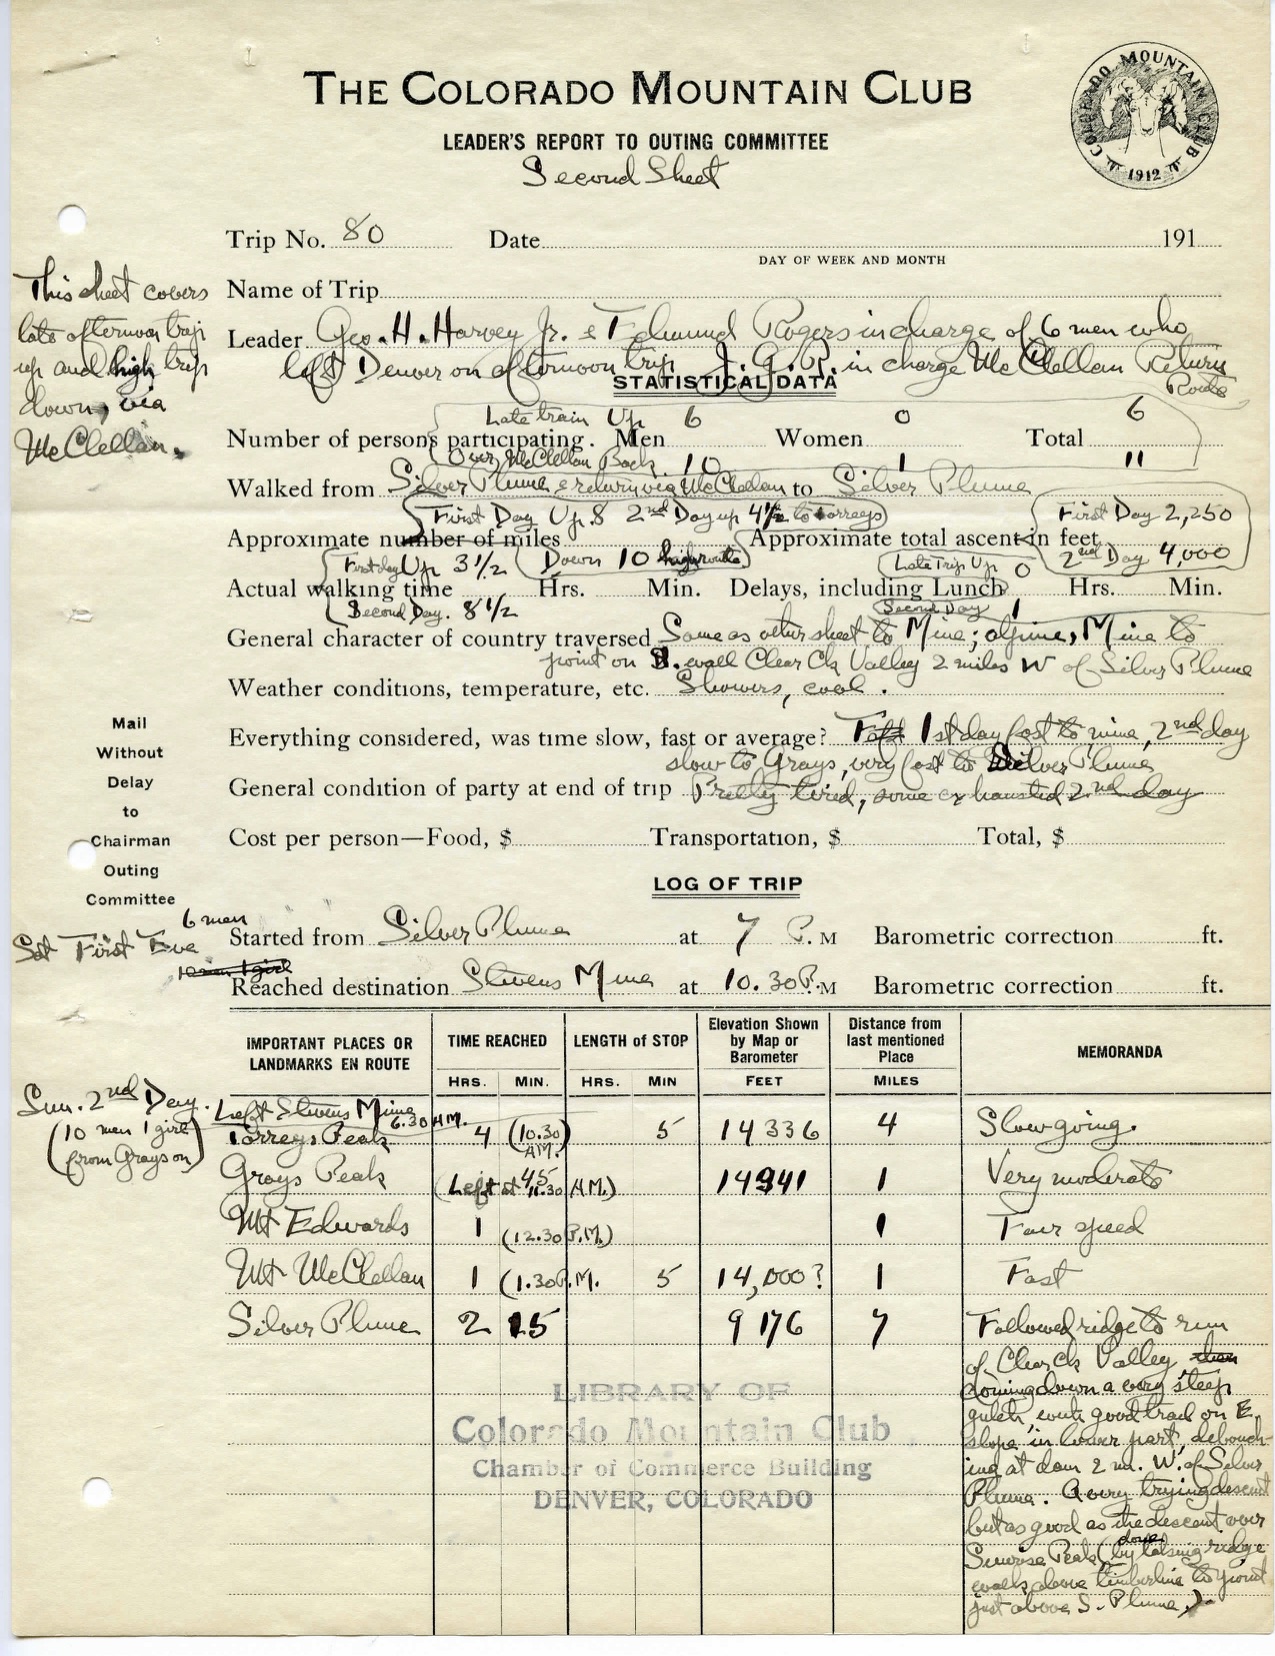 THE COLORADO MOUNTAIN CLUB
COLORADO MOUNTAIN CLUB
1912
LEADER'S REPORT TO OUTING COMMITTEE
Second Sheet
Trip No. 80 Date 191
DAY OF WEEK AND MONTH
This sheet covers
late afternoon trip
up and high trip
down, via
McClellan.
Name of Trip
Leader Geo. H. Harvey Jr. & Edmund Rogers in charge of 6 men who
left Denver on afternoon trip J. G. R. in charge McClellan Return
Route
STATISTICAL DATA
Late train Up 6 0 6
Number of persons participating. Men Women Total
Over McClellan Back. 10 1 11
Walked from Silver Plume & return via McClellan to Silver Plume
First Day Up 8 2nd Day up 4½ to Torreys First Day 2,250
Approximate number of miles Approximate total ascent in feet
First day Up 3½ Down 10 high route Late Trip Up 0 2nd Day 4,000
Actual walking time Hrs. Min. Delays, including Lunch Hrs. Min.
Second Day. 8½ Second Day 1
General character of country traversed Same as other sheet to Mine; alpine, Mine to
point on S. wall Clear Ck Valley 2 miles W of Silver Plume
Weather conditions, temperature, etc. Showers, cool.
Everything considered, was time slow, fast or average? Fast 1st day fast to mine, 2nd day
slow to Grays, very fast to Silver Plume
General condition of party at end of trip Pretty tired, some exhausted 2nd day
Cost per person—Food, $ Transportation, $ Total, $
Mail
Without
Delay
to
Chairman
Outing
Committee
LOG OF TRIP
6 men
Sat First Eve
10 men 1 girl
Started from Silver Plume at 7 P. M Barometric correction ft.
Reached destination Stevens Mine at 10.30 P. M Barometric correction ft.
IMPORTANT PLACES OR LANDMARKS EN ROUTE TIME REACHED LENGTH of STOP Elevation Shown by Map or Barometer Distance from last mentioned Place MEMORANDA
HRS. MIN. HRS. MIN FEET MILES
Sun. 2nd Day.
(10 men 1 girl
from Grays on)
Left Stevens Mine 6.30 A.M.
Torreys Peak 4 (10.30 A.M.) 5 14336 4 Slow going.
Grays Peak 45 (Left at 11.30 A.M.) 14341 1 Very moderate
Mt Edwards 1 (12.30 P.M.) 1 Fair speed
Mt McClellan 1 (1.30 P.M. 5 14,000? 1 Fast
Silver Plume 2 15 9176 7 Followed ridge to rim
of Clear Ck Valley then
coming down a very steep
gulch, with good trail on E.
slope in lower part, debouch-
ing at dam 2 mi. W. of Silver
Plume. A very trying descent
but as good as the descent over
Sunrise Peak (by taking ridge
done
walk above timberline to point
just above S. Plume.)
LIBRARY OF
Colorado Mountain Club
Chamber of Commerce Building
DENVER, COLORADO